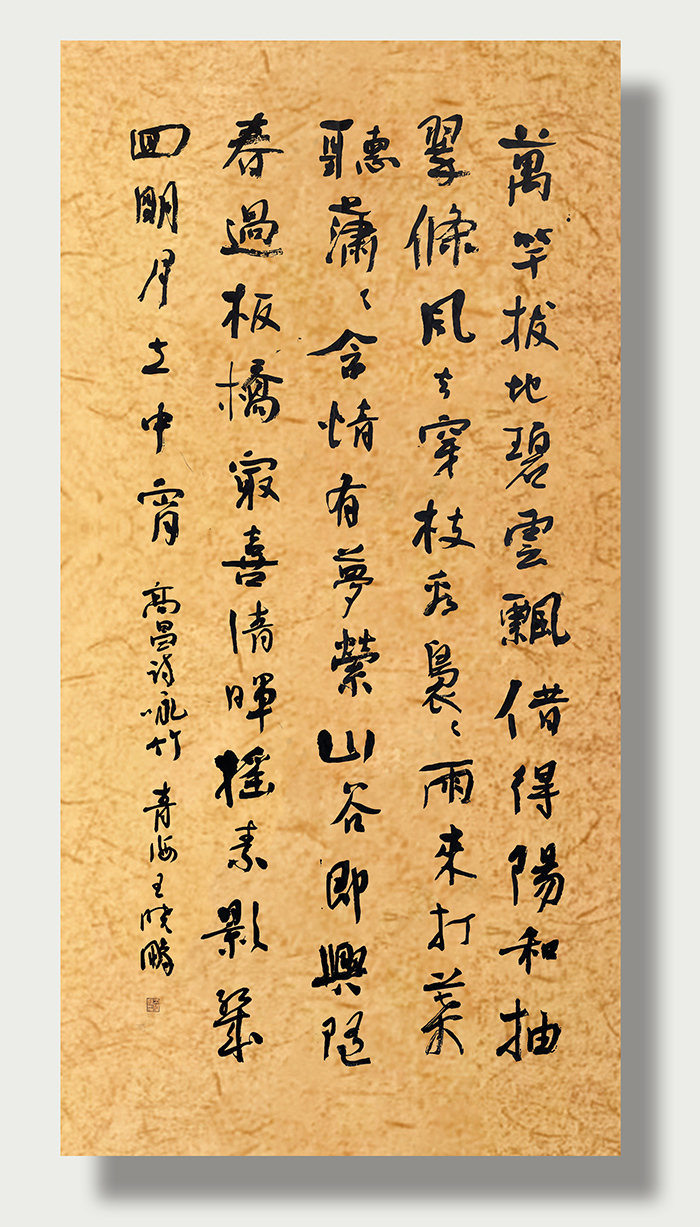 萬竿拔地碧雲飄借得陽和抽
翠條風去穿枝看裊々雨來打葉
聽瀟々含情有夢縈山谷即興隨
春過板橋最喜清暉搖素影幾
回明月立中宵
高昌诗詠竹 青海王晓鵬